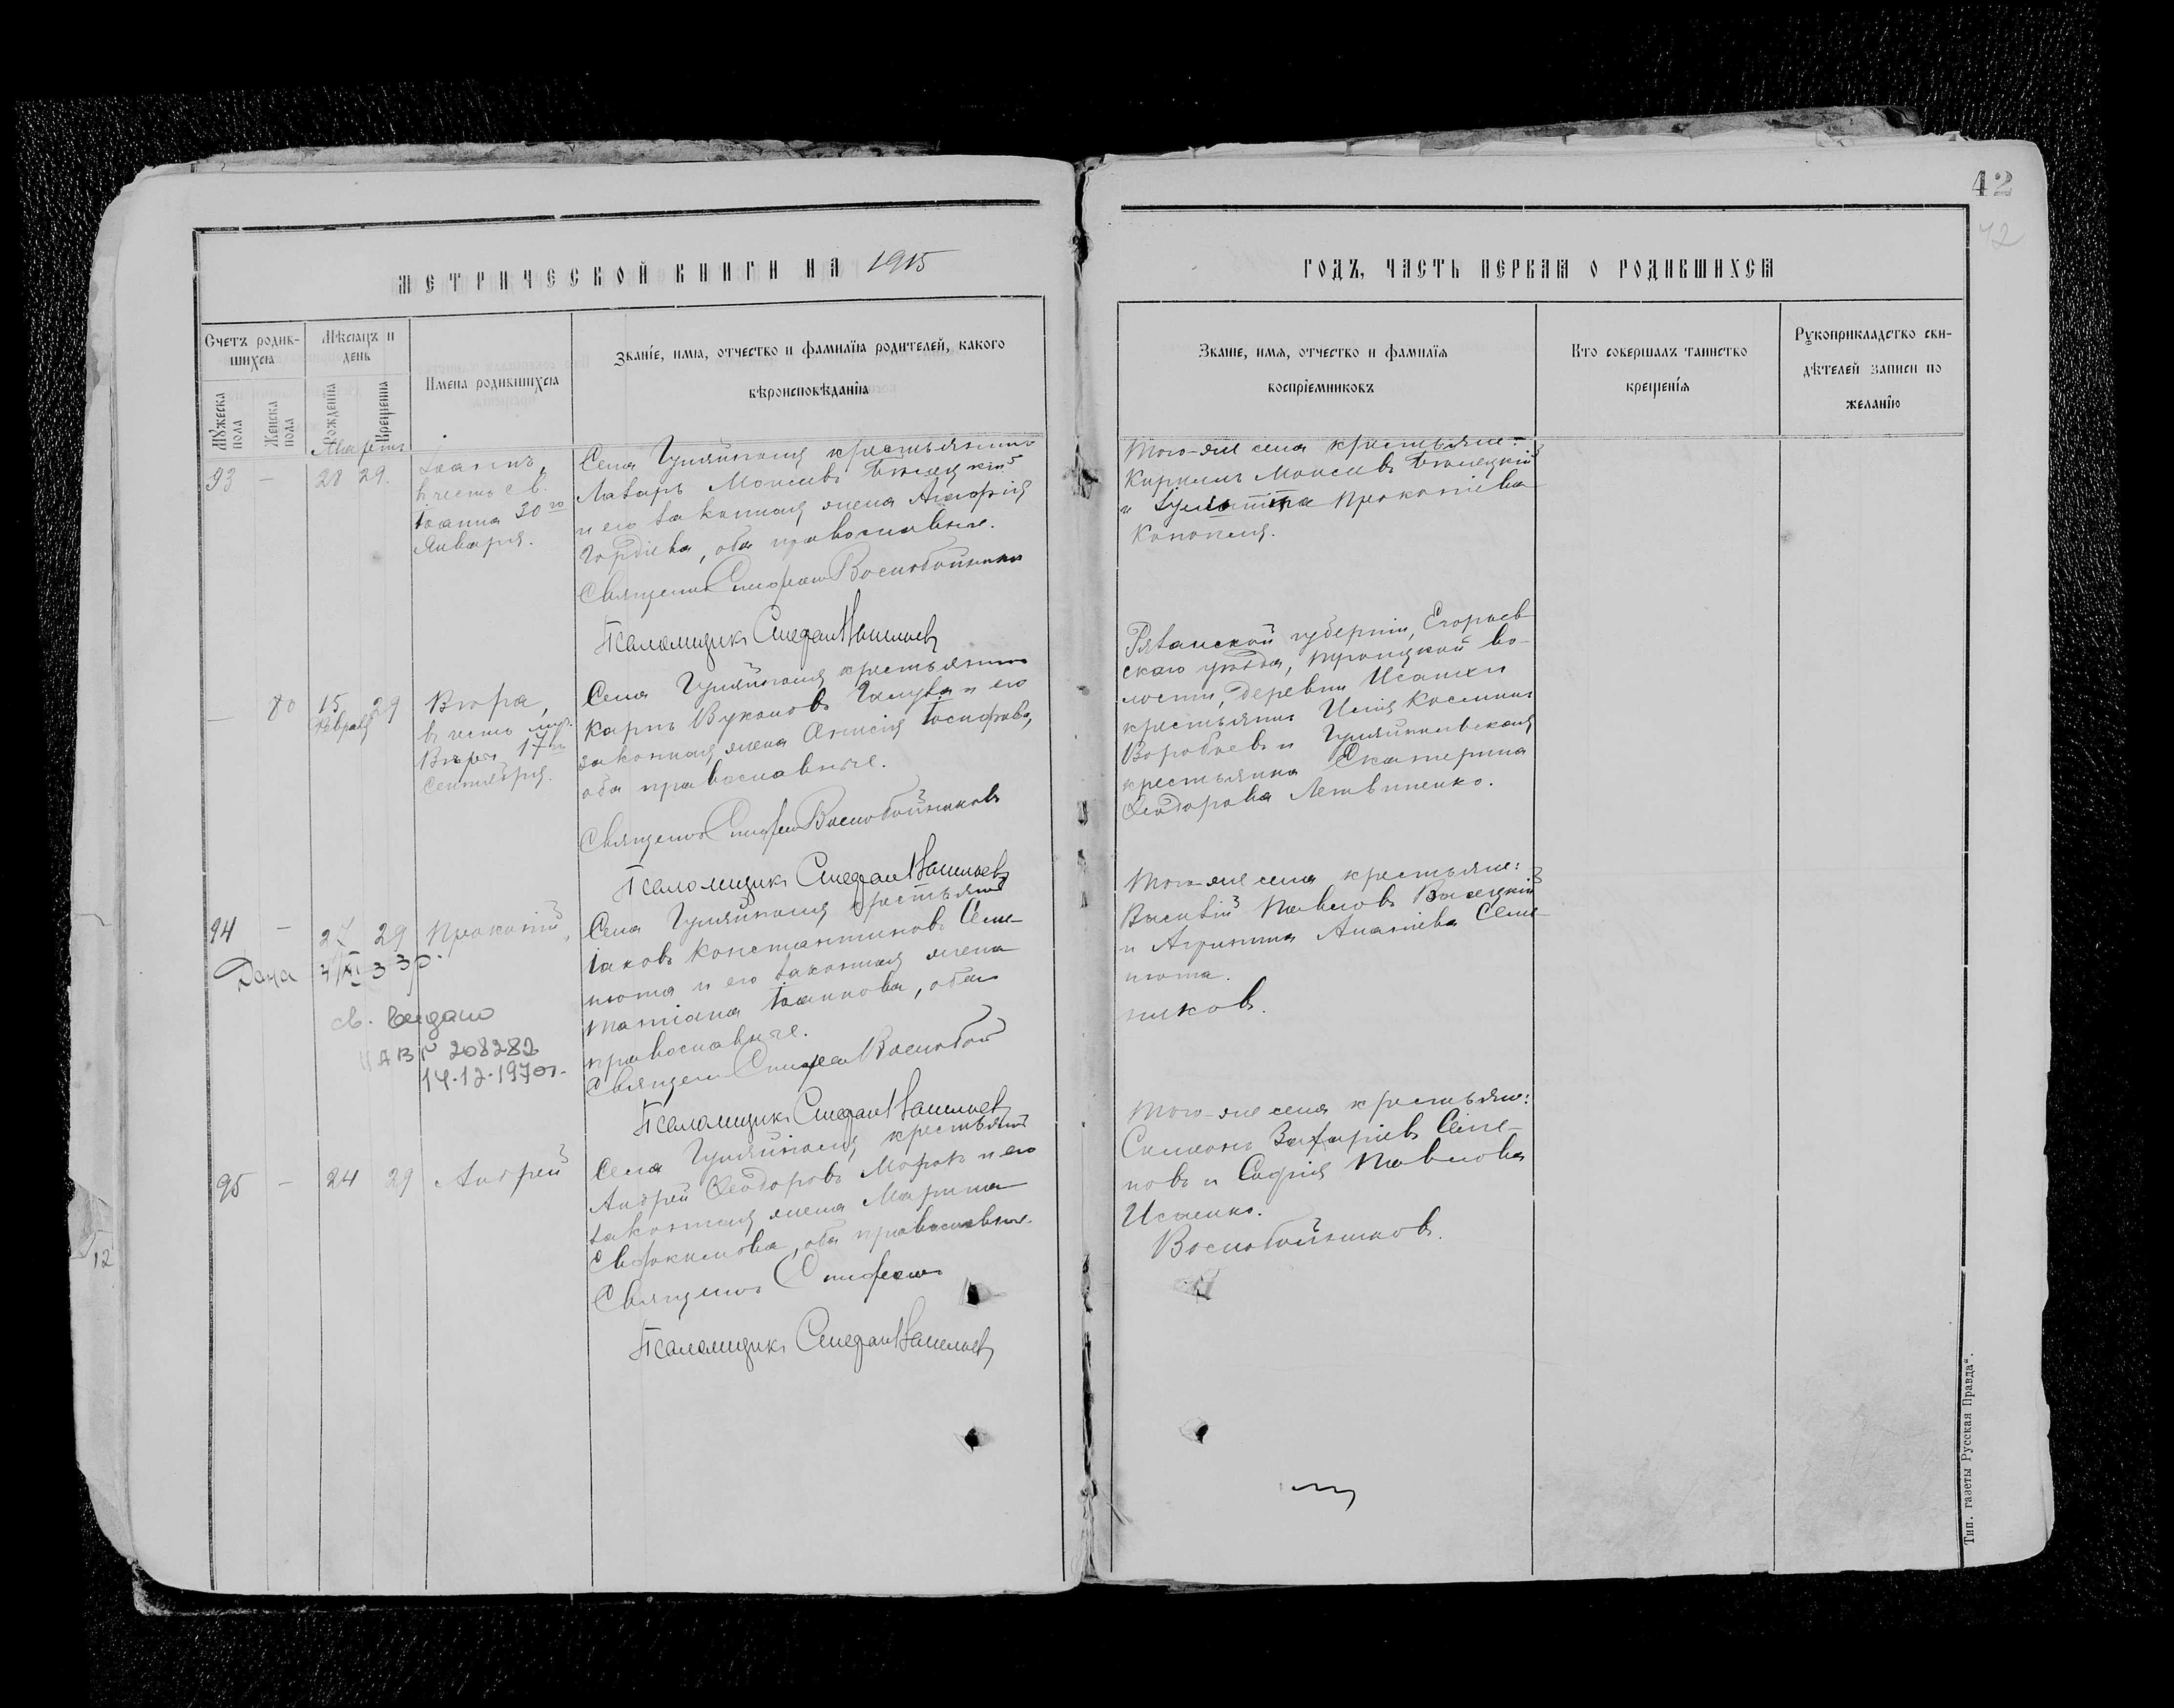 42
42
МЕТРИЧЕСКОЙ КНИГИ НА 1915
ГОДЪ, ЧАСТЬ ПЕРВАЯ О РОДИВШИХСЯ
Счетъ родив-
шихся
Мѣсяцъ и
день
Имена родившихся
Званіе, имя, отчество и фамилія родителей, какого
вѣроисповѣданія
Мужеска
пола
Женска
пола
Рожденія
Крещенія
Званіе, имя, отчество и фамилія
воспріемниковъ
Кто совершалъ таинство
крещенія
Рукоприкладство сви-
дѣтелей записи по
желанію
Мартъ
93 - 28 29.
Іоаннъ,
въ честь св.
Іоанна 30го
Января.
Села Гуляйполя крестьянинъ
Лазарь Моисеевъ
и его законная жена
Гордіева, оба православные.
Священникъ Стефанъ Воскобойниковъ
Псаломщикъ Стефанъ
Того-же села крестьяне:
Кириллъ Моисеевъ
и Прокопіева
Конопля.
- 80 15 29
Февраля
Вѣра,
въ честь муч.
Вѣры 17го
Сентября.
Села Гуляйполя крестьянинъ
Карпъ Вуколовъ Галушка и его
законная жена Анисія Іосифова,
оба православные.
Священникъ Стефанъ Воскобойниковъ
Псаломщикъ Стефанъ
Рязанской губерніи, Егорьев
скаго уѣзда, Троицкой во-
лости, деревни
крестьянинъ Илія Косминъ
Воробьевъ и Гуляйпольская
крестьянка Екатерина
Ѳеодорова Литвиненко.
94 - 27 29 Прокопій,
Дана 4/XI 33р.
св. видано
208282
14.12.1970г.
Села Гуляйполя крестьянинъ
Іаковъ Константиновъ Семе-
нюта и его законная жена
Татіана Іоаннова, оба
православные.
Священникъ Стефанъ Воскобой
Псаломщикъ Стефанъ
Того-же села крестьяне:
Василій Павловъ Высоцкій
и Агрипина Ананіева Семе-
нюта.
никовъ.
95 - 24 29 Андрей
Села Гуляйполя, крестьянинъ
Андрей Ѳеодоровъ Морокъ и его
законная жена Марина
Евфокимова, оба православные.
Священникъ Стефанъ
Псаломщикъ Стефанъ
Того-же села крестьяне:
Симеонъ Захаріевъ Семе-
новъ и Софія Павлова
Исаенко.
Воскобойниковъ.
12
Тип. газеты Русская Правда".